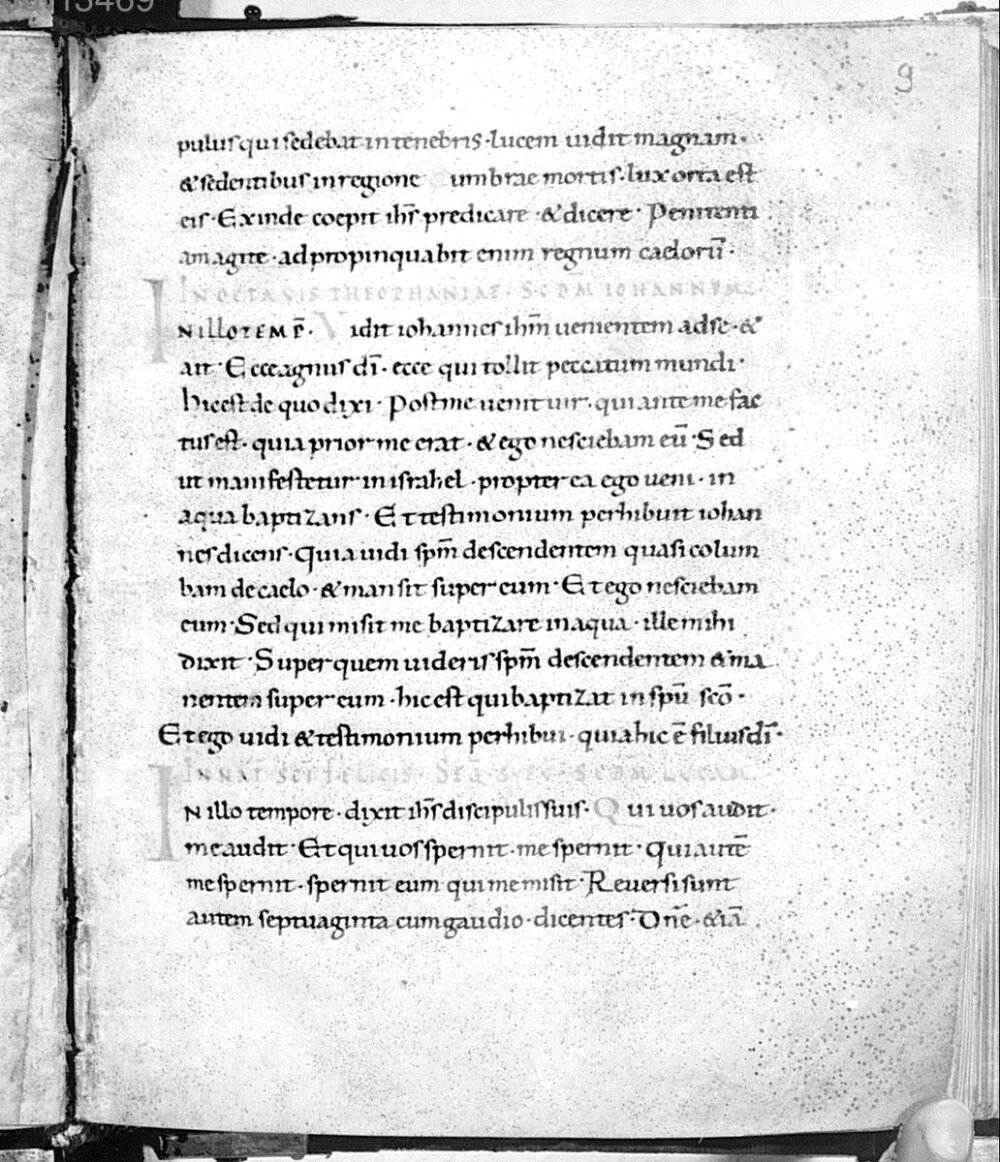 13469
9
pulus qui sedebat in tenebris · lucem uidit magnam ·
& sedentibus in regione umbrae mortis · lux orta est
eis · Exinde coepit ihs̄ predicare · & dicere · Penitenti
am agite · adpropinquabit enim regnum caelorū ·
IN OCTAVIS THEOPHANIAE · SCDM̄ IOHANNEM
N ILLO TEM P̄ · Vidit iohannes ihm̄ uenientem ad se · &
ait · Ecce agnus dī · ecce qui tollit peccatum mundi ·
hic est de quo dixi · Post me uenit uir · qui ante me fac
tus est · quia prior me erat · & ego nesciebam eū · Sed
ut manifestetur in israhel · propterea ego ueni · in
aqua baptizans · Et testimonium perhibuit iohan
nes dicens · Quia uidi spm̄ descendentem quasi colum
bam de caelo · & mansit super eum · Et ego nesciebam
eum · Sed qui misit me baptizare in aqua · ille mihi
dixit · Super quem uideris spm̄ descendentem & ma
nentem super eum · hic est qui baptizat in spū scō ·
Et ego uidi & testimonium perhibui · quia hic ē filius dī ·
IN NAT̄ SCI FELICIS · SCDM LUCAM
N illo tempore · dixit ihs̄ discipulis suis · Qui uos audit ·
me audit · Et qui uos spernit · me spernit · Qui autē
me spernit · spernit eum qui me misit · Reuersi sunt
autem septuaginta cum gaudio · dicentes · Dn̄e · & iā